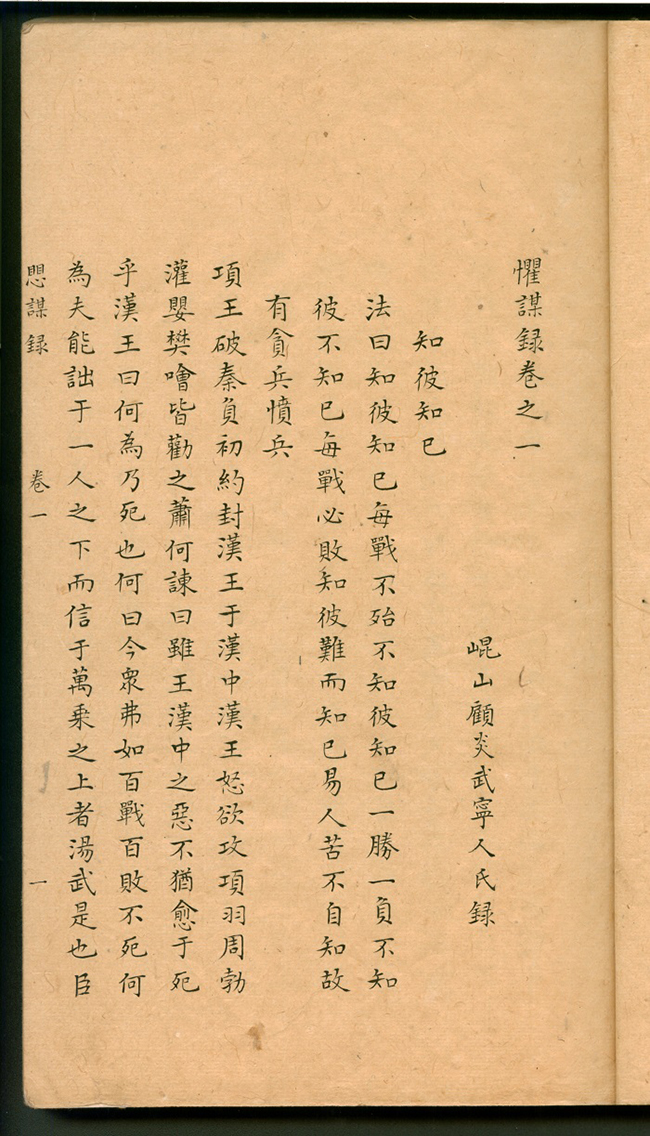 懼謀録卷之一
崐山顧炎武寧人氏録
知彼知已
法曰知彼知已每戰不殆不知彼知已一勝一負不知
彼不知已每戰必敗知彼難而知已易人苦不自知故
有貪兵憤兵
項王破秦負初約封漢王于漢中漢王怒欲攻項羽周勃
灌嬰樊噲皆勸之蕭何諫曰雖王漢中之惡不猶愈于死
乎漢王曰何為乃死也何曰今衆弗如百戰百敗不死何
為夫能詘于一人之下而信于萬乗之上者湯武是也臣
思謀録 卷一 一